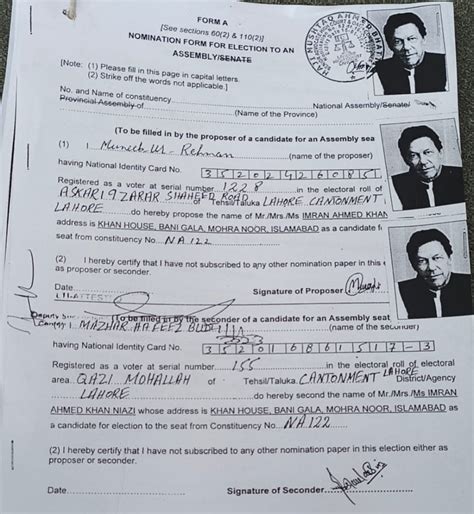 FORM A
[See sections 60(2) & 110(2)]
NOMINATION FORM FOR ELECTION TO AN
ASSEMBLY/SENATE
HAJI MUSHTAQ AHMED BHATTI
[Note: (1) Please fill in this page in capital letters.
(2) Strike off the words not applicable.]
No. and Name of constituency National Assembly/Senate/
Provincial Assembly of (Name of the Province)
(To be filled in by the proposer of a candidate for an Assembly seat
(1) I Rehman (name of the proposer)
having National Identity Card No.
Registered as a voter at serial number 1228 in the electoral roll of
ASKARI 9 ZARAR SHAHEED ROAD Tehsil/Taluka LAHORE CANTONMENT
LAHORE do hereby propose the name of Mr./Mrs./Ms IMRAN AHMED KHAN
address is KHAN HOUSE, BANI GALA, MOHRA NOOR, ISLAMABAD as a candidate f
seat from constituency No. NA 122
(2) I hereby certify that I have not subscribed to any other nomination paper in this e
as proposer or seconder.
Date Signature of Proposer
(To be filled in by the seconder of a candidate for an Assembly seat
I MAZHAR HAFEEZ (name of the seconder)
having National Identity Card No.
Registered as a voter at serial number 155 in the electoral roll of electoral
area QAZI MOHALLAH of Tehsil/Taluka CANTONMENT LAHORE District/Agency
LAHORE do hereby second the name of Mr./Mrs./Ms IMRAN
AHMED KHAN NIAZI whose address is KHAN HOUSE, BANI GALA, MOHRA NOOR, ISLAMABAD as
a candidate for election to the seat from Constituency No. NA 122
(2) I hereby certify that I have not subscribed to any other nomination paper in this election either as
proposer or seconder.
Date Signature of Seconder